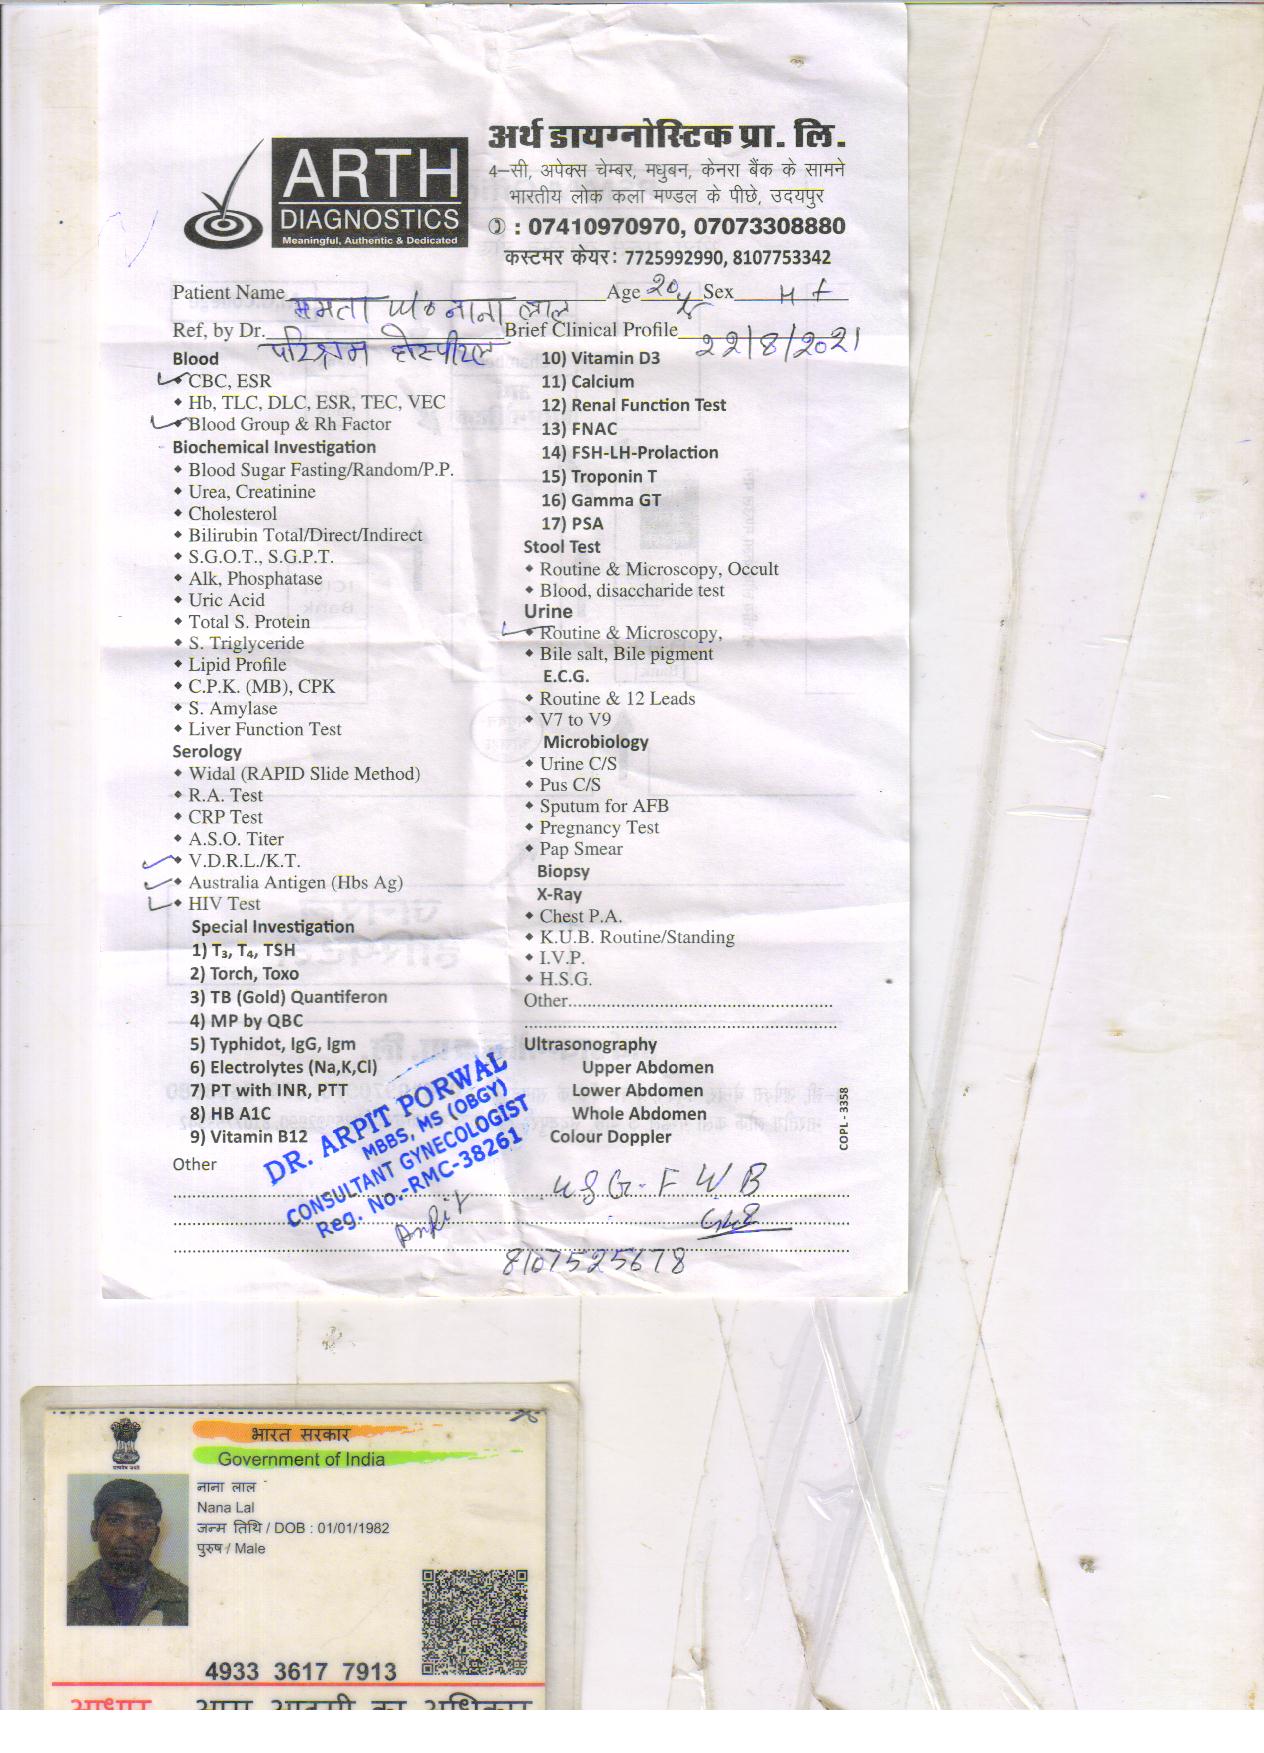 ARTH
DIAGNOSTICS
Meaningful, Authentic & Dedicated
अर्थ डायग्नोस्टिक प्रा. लि.
4-सी, अपेक्स चेम्बर, मधुबन, केनरा बैंक के सामने
भारतीय लोक कला मण्डल के पीछे, उदयपुर
: 07410970970, 07073308880
कस्टमर केयर: 7725992990, 8107753342
Patient Name ममता W/o नाना लाल Age 20 Sex
Ref, by Dr. परिश्रम होस्पीटल Brief Clinical Profile 22/8/2021
Blood
CBC, ESR
Hb, TLC, DLC, ESR, TEC, VEC
Blood Group & Rh Factor
Biochemical Investigation
Blood Sugar Fasting/Random/P.P.
Urea, Creatinine
Cholesterol
Bilirubin Total/Direct/Indirect
S.G.O.T., S.G.P.T.
Alk, Phosphatase
Uric Acid
Total S. Protein
S. Triglyceride
Lipid Profile
C.P.K. (MB), CPK
S. Amylase
Liver Function Test
Serology
Widal (RAPID Slide Method)
R.A. Test
CRP Test
A.S.O. Titer
V.D.R.L./K.T.
Australia Antigen (Hbs Ag)
HIV Test
Special Investigation
1) T₃, T₄, TSH
2) Torch, Toxo
3) TB (Gold) Quantiferon
4) MP by QBC
5) Typhidot, IgG, Igm
6) Electrolytes (Na,K,Cl)
7) PT with INR, PTT
8) HB A1C
9) Vitamin B12
Other
10) Vitamin D3
11) Calcium
12) Renal Function Test
13) FNAC
14) FSH-LH-Prolaction
15) Troponin T
16) Gamma GT
17) PSA
Stool Test
Routine & Microscopy, Occult
Blood, disaccharide test
Urine
Routine & Microscopy,
Bile salt, Bile pigment
E.C.G.
Routine & 12 Leads
V7 to V9
Microbiology
Urine C/S
Pus C/S
Sputum for AFB
Pregnancy Test
Pap Smear
Biopsy
X-Ray
Chest P.A.
K.U.B. Routine/Standing
I.V.P.
H.S.G.
Other
Ultrasonography
Upper Abdomen
Lower Abdomen
Whole Abdomen
Colour Doppler
COPL - 3358
DR. ARPIT PORWAL
MBBS, MS (OBGY)
CONSULTANT GYNECOLOGIST
Reg. No.-RMC-38261
USG-FWB
8107525678
भारत सरकार
Government of India
नाना लाल
Nana Lal
जन्म तिथि / DOB : 01/01/1982
पुरुष / Male
4933 3617 7913
आधार
आम आदमी का अधिकार